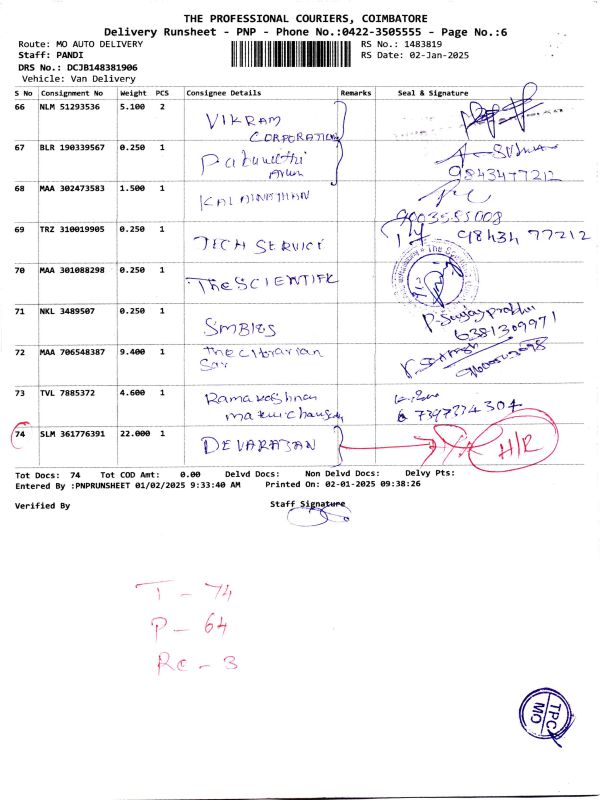 THE PROFESSIONAL COURIERS, COIMBATORE
Delivery Runsheet - PNP - Phone No.:0422-3505555 - Page No.:6
Route: MO AUTO DELIVERY RS No.: 1483819
Staff: PANDI RS Date: 02-Jan-2025
DRS No.: DCJB148381906
Vehicle: Van Delivery
S No Consignment No Weight PCS Consignee Details Remarks Seal & Signature
66 NLM 51293536 5.100 2 VIKRAM
CORPORATION
67 BLR 190339567 0.250 1
9843477212
68 MAA 302473583 1.500 1
9003555008
69 TRZ 310019905 0.250 1 TECH SERVICE 98434 77212
70 MAA 301088298 0.250 1 The SCIENTIFIC
71 NKL 3489507 0.250 1 SMBIES
6381309971
72 MAA 706548387 9.400 1 The Librarian
73 TVL 7885372 4.600 1 Ramakrishnan
74 SLM 361776391 22.000 1 DEVARAJAN H/R
Tot Docs: 74 Tot COD Amt: 0.00 Delvd Docs: Non Delvd Docs: Delvy Pts:
Entered By :PNPRUNSHEET 01/02/2025 9:33:40 AM Printed On: 02-01-2025 09:38:26
Verified By Staff Signature
T - 74
P - 64
Re - 3
TPC
MO